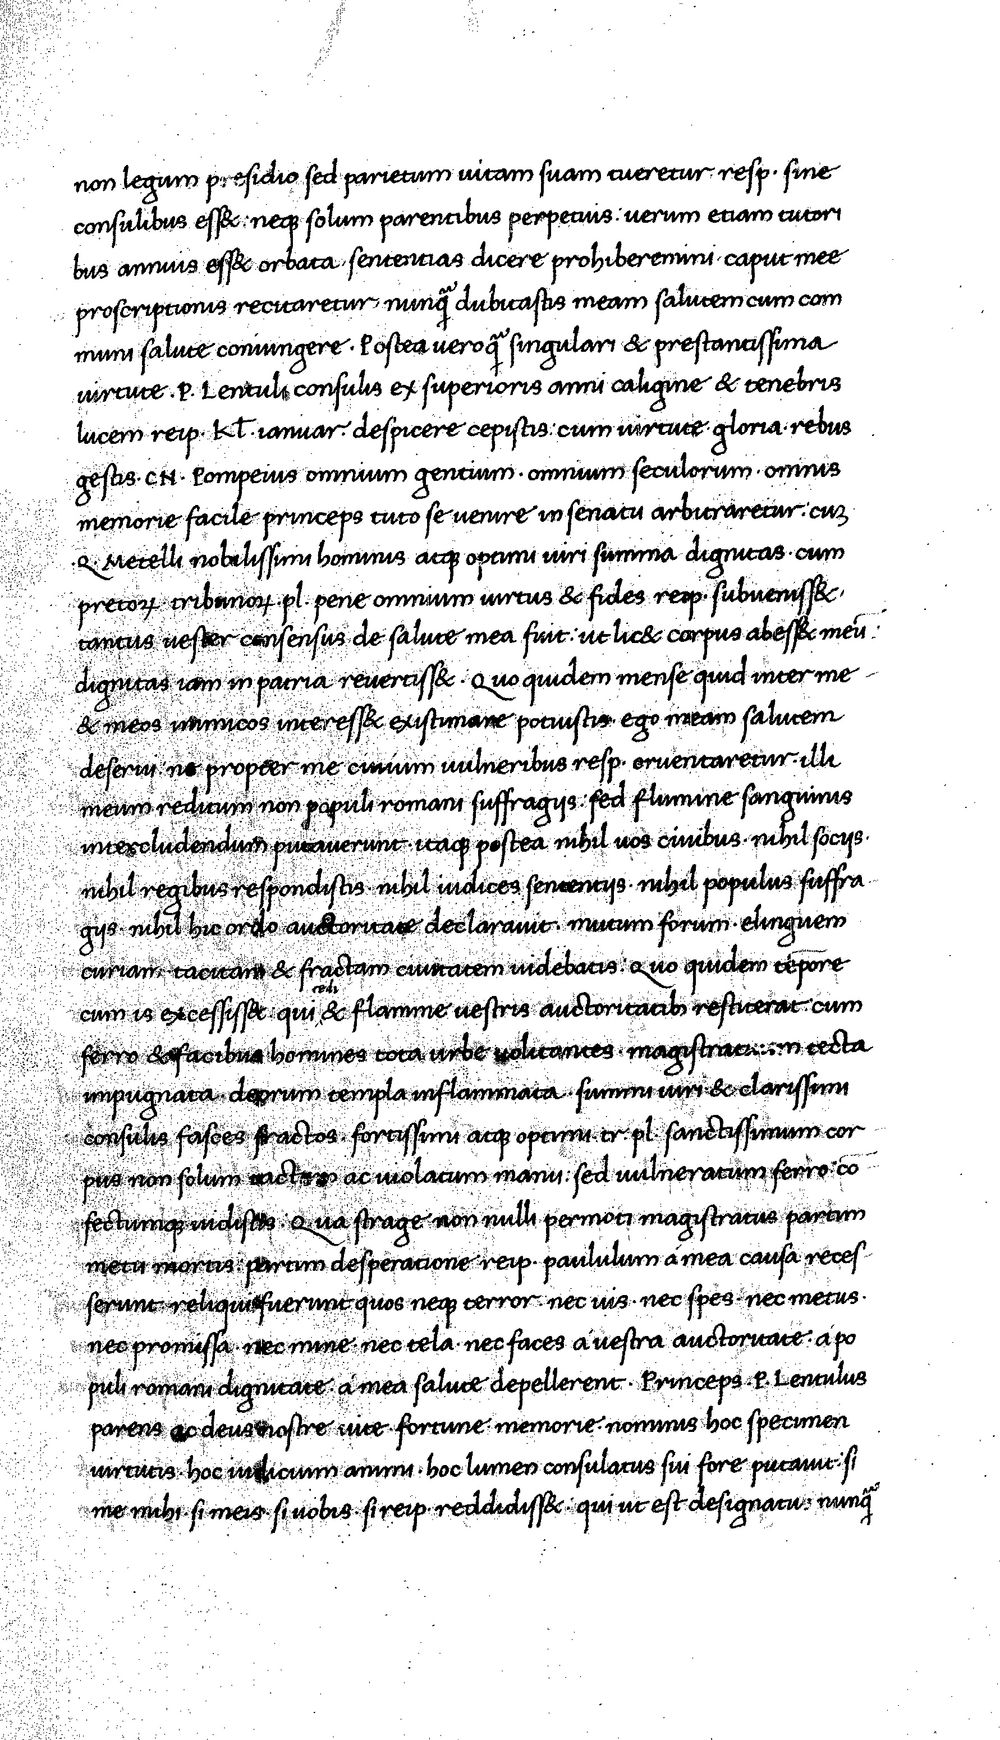 non legum presidio sed parietum uitam suam tueretur· resp· sine
consulibus ess&· neq; solum parentibus perpetuis: uerum etiam tutori
bus annuis ess& orbata· sententias dicere prohiberemini· caput mee
proscriptionis recitaretur· nunq̃ dubitastis meam salutem cum com
muni salute coniungere· Postea uero q̃ singulari & prestantissima
uirtute ·P· Lentuli consulis ex superioris anni caligine & tenebris
lucem reip· kl̅ ianuar· despicere cepistis: cum uirtute gloria· rebus
gestis· CN· Pompeius omnium gentium· omnium seculorum· omnis
memorie facile princeps tuto se uenire in senatu arbitraretur: cuꝫ
·Q· Metelli nobilissimi hominis atq; optimi uiri summa dignitas· cum
pretoꝝ tribunoꝝ pl· pene omnium uirtus & fides reip· subueniss&·
tantus uester consensus de salute mea fuit: ut lic& corpus abess& meū:
dignitas iam in patria reuertiss&· Quo quidem mense quid inter me
& meos inimicos interess& existimare potuistis· ego meam salutem
deserui ne propter me ciuium uulneribus resp· cruentaretur· illi
meum reditum non populi romani suffragijs: sed flumine sanguinis
intercludendum putauerunt· itaq; postea nihil uos ciuibus· nihil socijs·
nihil regibus respondistis· nihil iudices sententijs· nihil populus suffra
gijs· nihil hic ordo auctoritate declarauit· mutum forum· elinguem
curiam· tacitam & fractam ciuitatem uidebatis: Quo quidem tēpore
redi
cum is excessiss& qui & flamme uestris auctoritatib; restiterat· cum
ferro & facibus homines tota urbe uolitantes· tecta
impugnata· deorum templa inflammata· summi uiri & clarissimi
consulis fasces fractos· fortissimi atq; optimi· tr· pl· sanctissimum cor
pus non solum ac uiolatum manu: sed uulneratum ferro· cō
fectumq; uidistis· Qua strage non nulli permoti magistratus partim
metu mortis: partim desperatione reip· paululum a mea causa reces
serunt· reliqui fuerunt quos neq; terror· nec uis· nec spes· nec metus·
nec promissa· nec mine· nec tela· nec faces a uestra auctoritate· a po
puli romani dignitate· a mea salute depellerent· Princeps ·P· Lentulus
parens ac deus nostre uite· fortune· memorie· nominis hoc specimen
uirtutis· hoc indicium animi· hoc lumen consulatus sui fore putauit· si
me mihi· si meis· si uobis· si reip· reddidiss&· qui ut est designatus nunq̃